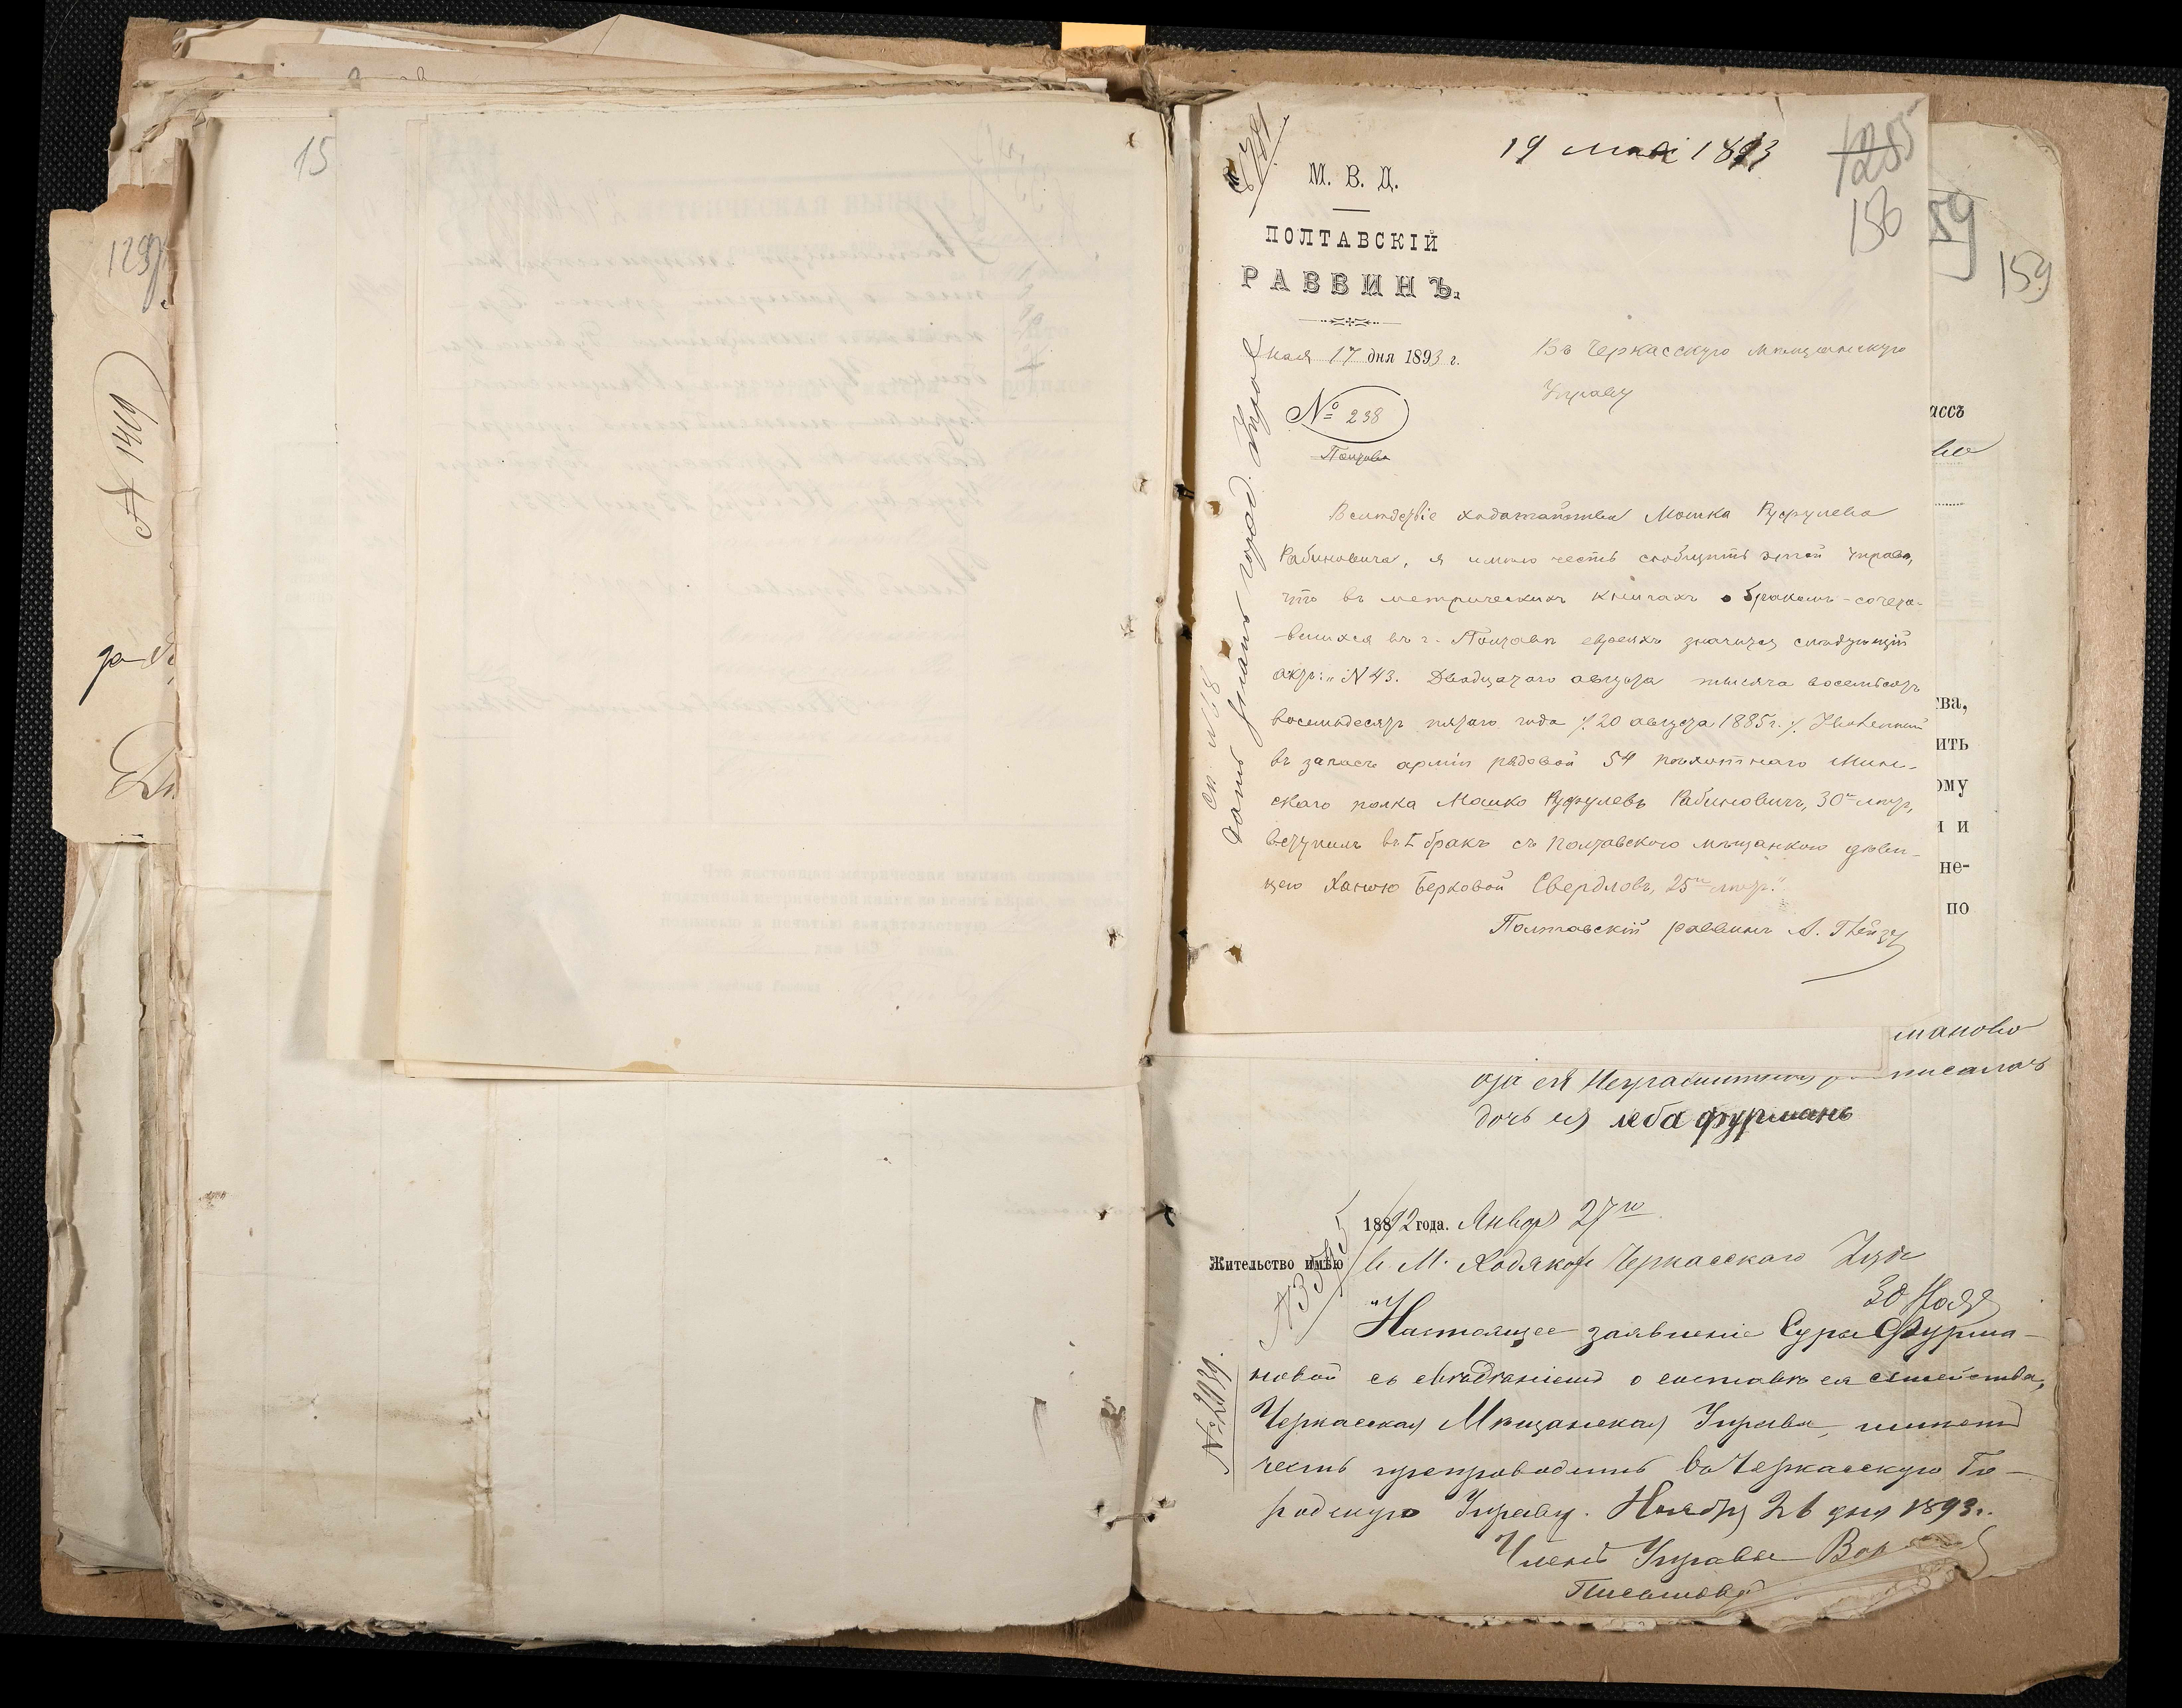 15
129
№ 1419
19 мая 1893
1285
158
59
159
М. В. Д.
ПОЛТАВСКІЙ
РАВВИНЪ.
мая 17 дня 1893 г.
Въ Черкасскую мѣщанскую
Управу
№ 238
Полтава
Вслѣдствіе ходатайства Мошка Руфулева
Рабиновича, я имѣю честь сообщить этой Управѣ,
что въ метрическихъ книгахъ о бракомъ-сочета-
вшихся въ г. Полтавѣ евреяхъ значится слѣдующій
актъ: „N 43. Двадцатаго августа тысяча восемьсотъ
восемьдесятъ пятаго года /. 20 августа 1885 г. /. Уволенный
въ запасъ арміи рядовой 54 пѣхотнаго Мин-
скаго полка Мошко Руфулевъ Рабиновичъ, 30 лѣтъ,
вступилъ въ I бракъ съ полтавскою мѣщанкою дѣви-
цею Ханою Берковой Свердловъ, 25 лѣтъ."
Полтавскій раввинъ А.
ассъ
тва,
ить
ому
и и
не-
по
маново
ея Неграмотный росписалась
дочь ея леба фурманъ
1892 года. Января 27го
Жительство имѣю в М. Ходяков Черкасскаго Уѣз
30 Нояб
Настоящее заявленіе Суры Фурма-
новой съ свѣдѣніемъ о составѣ ея семейства,
Черкасская Мѣщанская Управа, имѣетъ
честь препроводить въ Черкасскую Го-
родскую Управу. Ноября 26 дня 1893 г.
№ 2439.
Членъ Управы
Письмовод